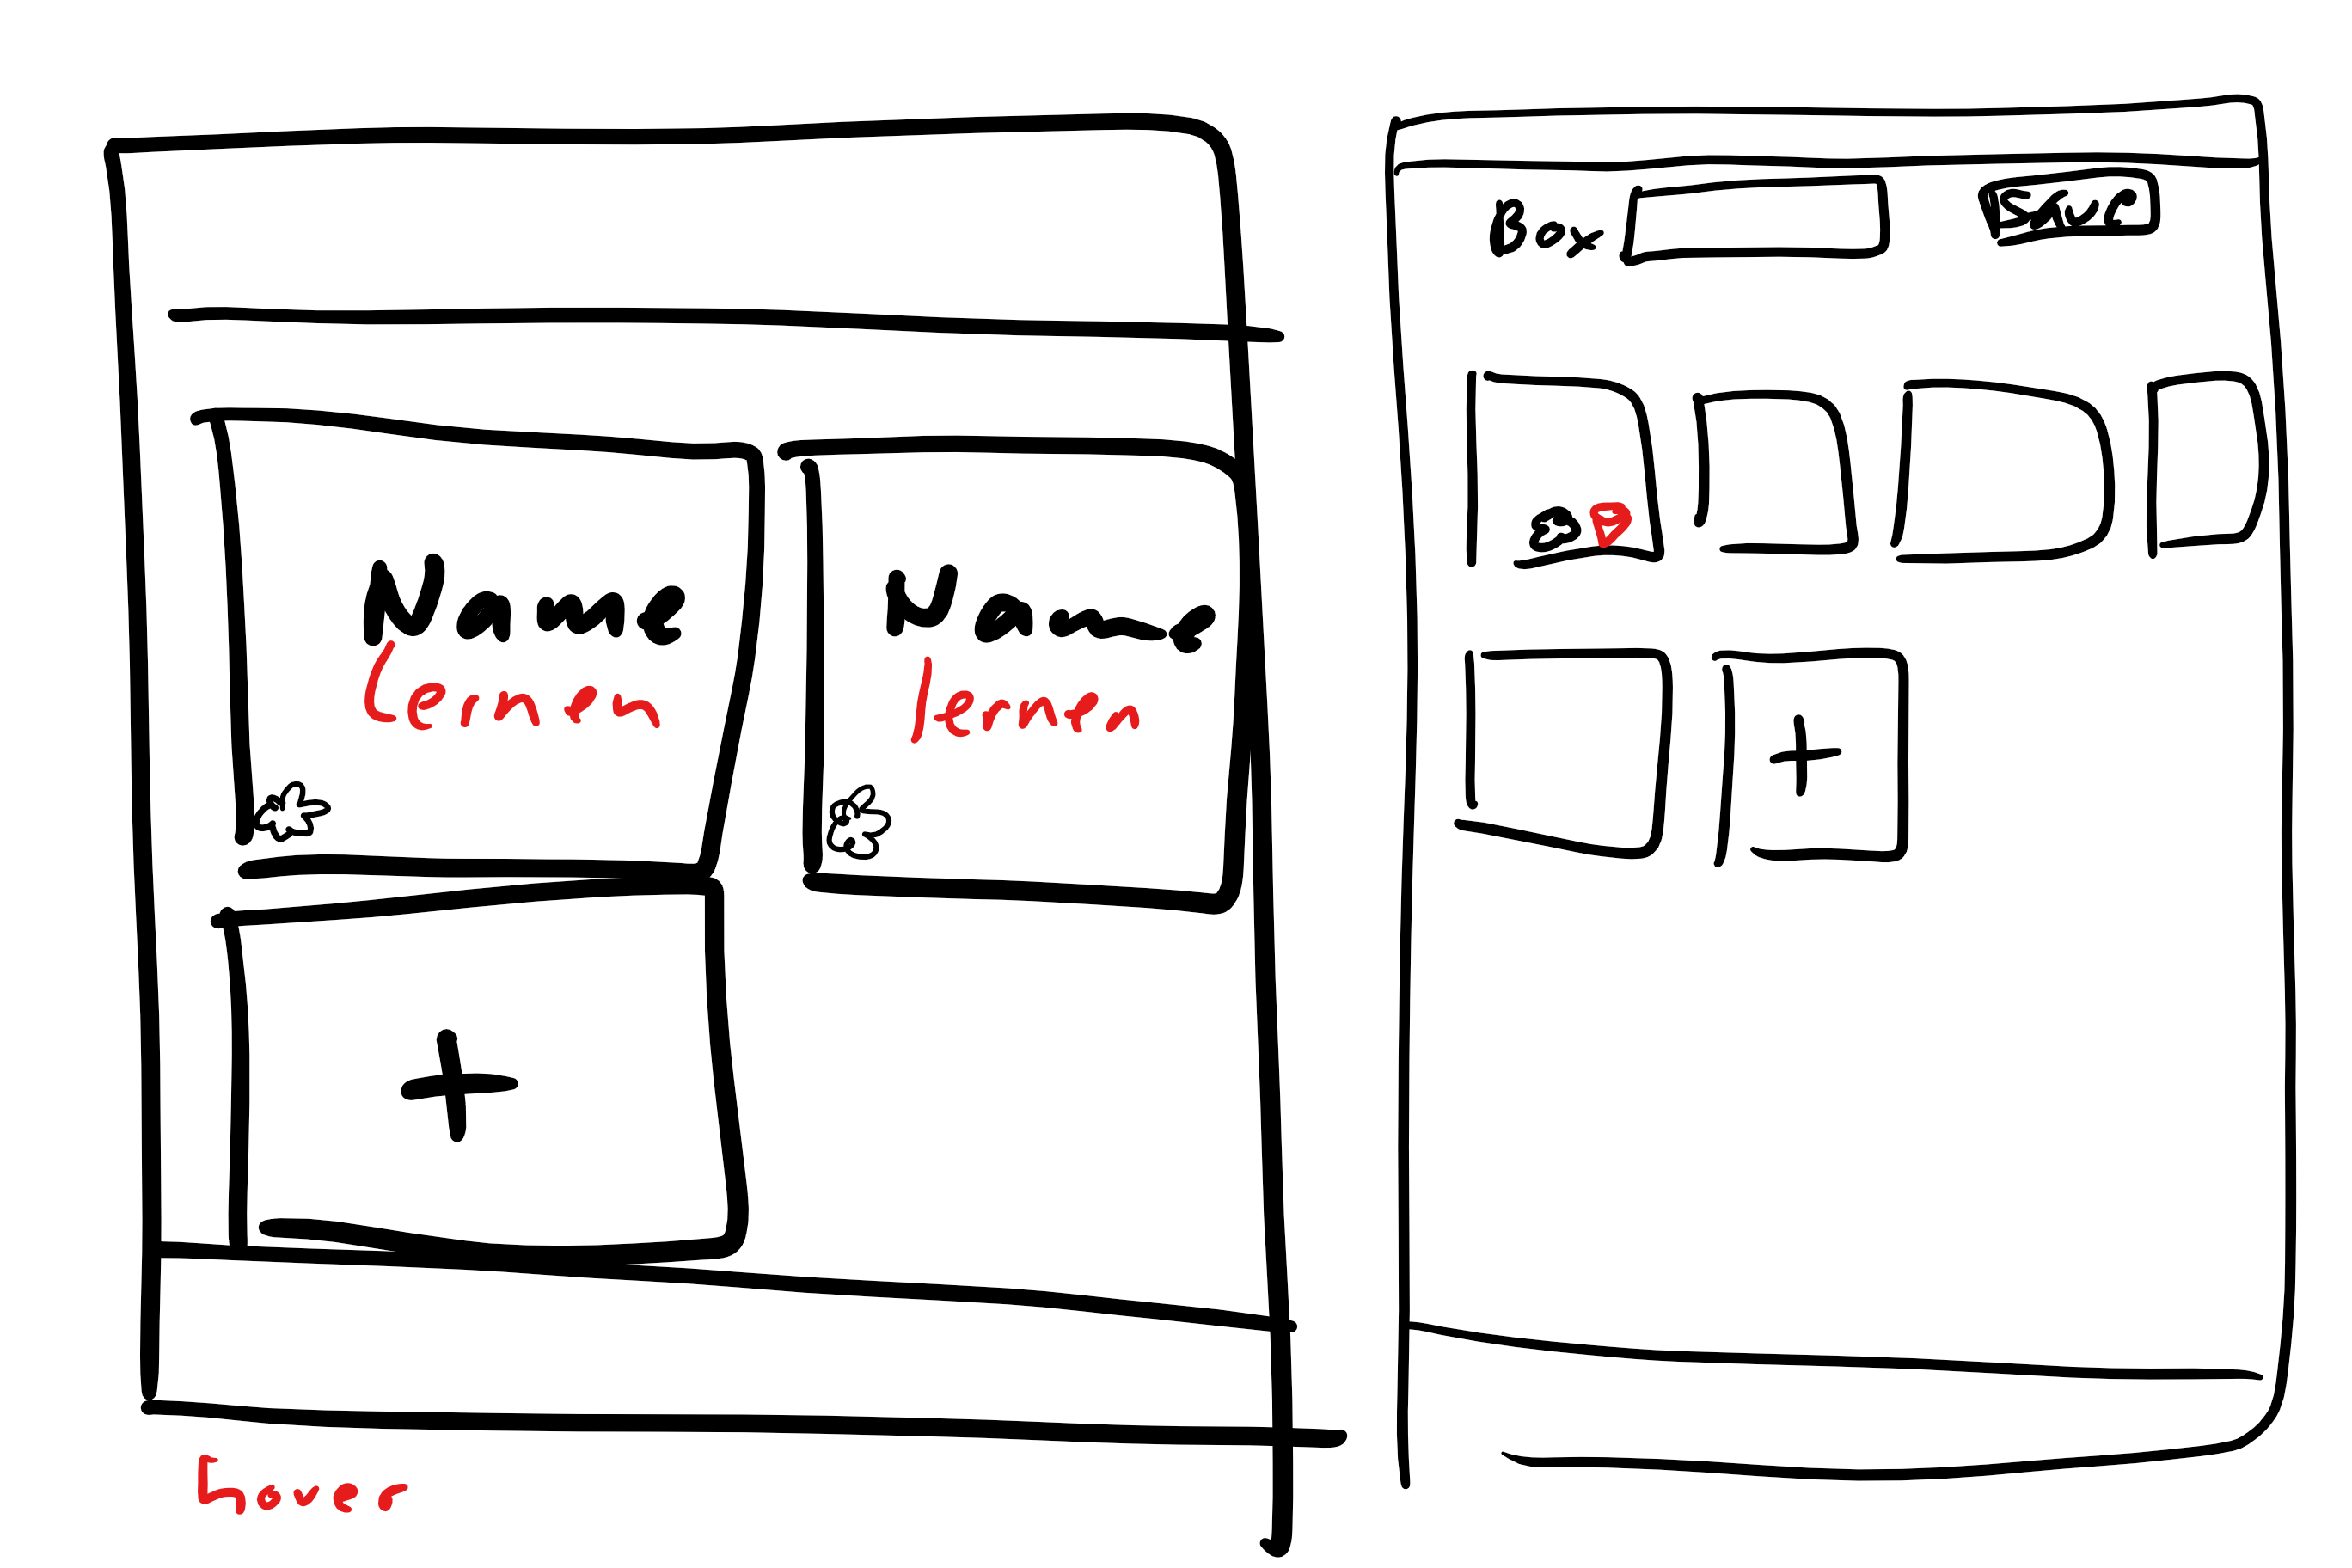 Name
Lernen
Name
lernen
+
hover
Box
Save
+